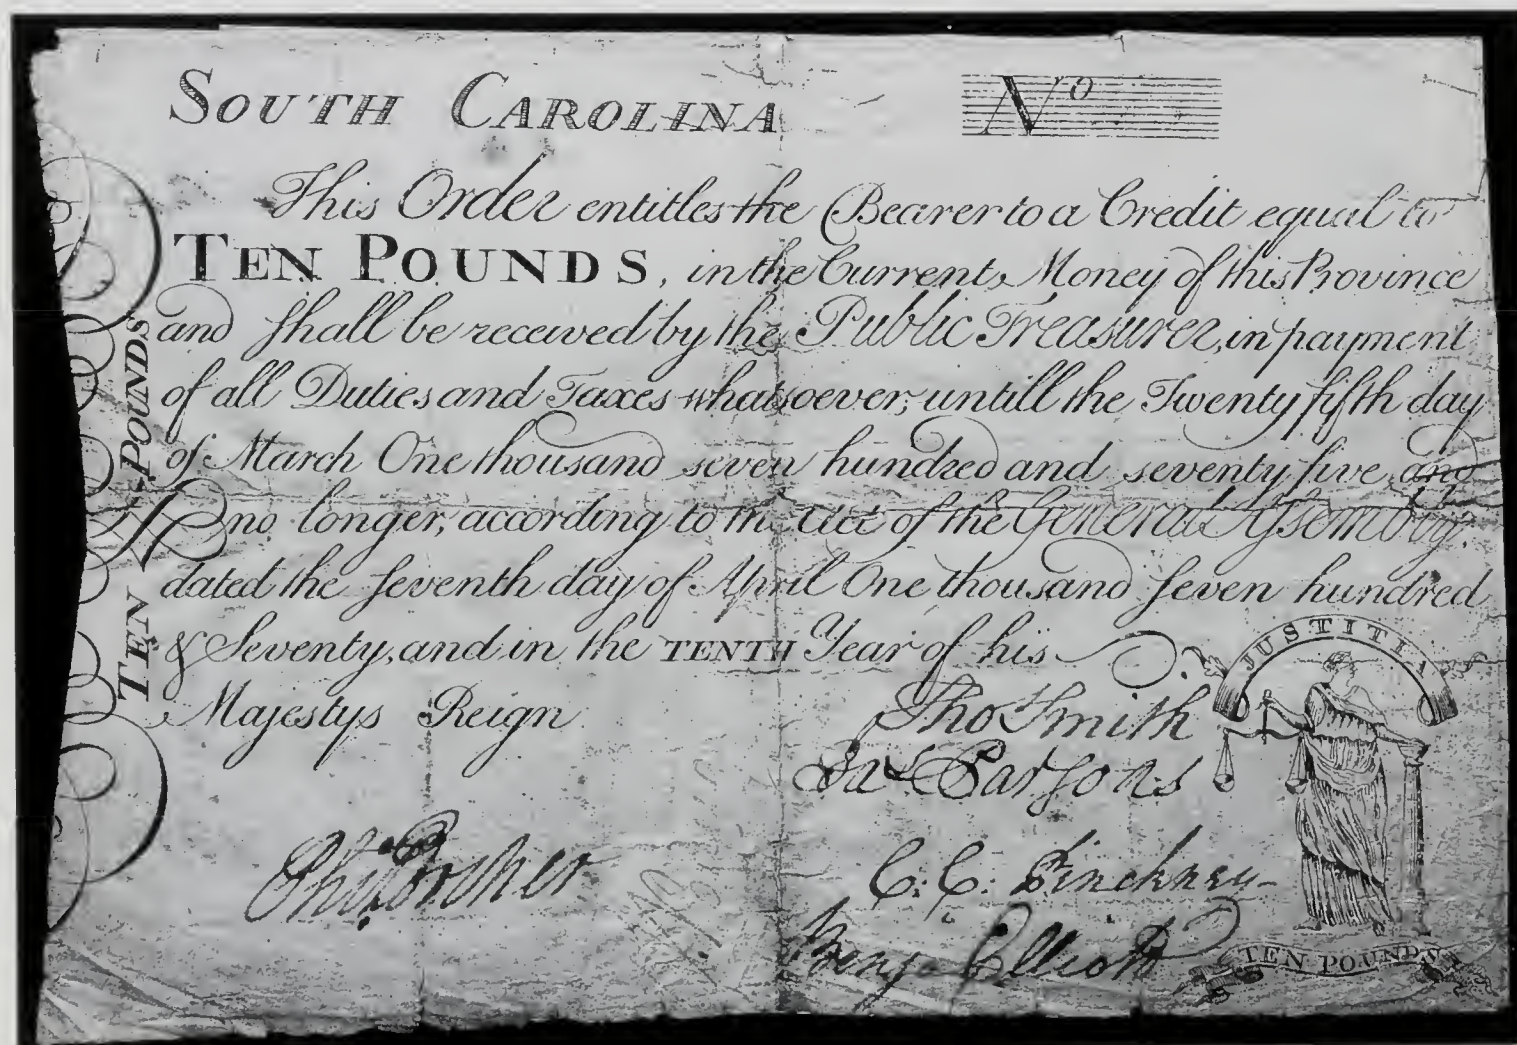 SOUTH CAROLINA
No
This Order entitles the Bearer to a Credit equal to
TEN POUNDS, in the Current Money of this Province
and shall be received by the Public Treasurer, in payment
of all Duties and Taxes whatsoever, untill the Twenty fifth day
of March One thousand seven hundred and seventy five, and
no longer, according to the Act of the General Assembly,
dated the seventh day of April One thousand seven hundred
& Seventy, and in the TENTH Year of his
Majestys Reign
TEN POUNDS
Tho Smith
Jas Parsons
C. C. Pinckney
Benj Elliott
Phil Porcher
JUSTITIA
TEN POUNDS